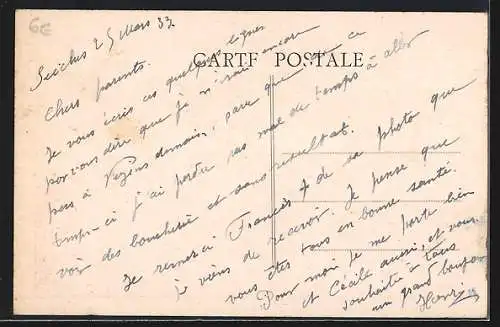 6€
CARTE POSTALE
Seiches 25 Mars 33
Chers parents.
Je vous écris ces quelques lignes
pour vous dire que je n'irai encore
pas à Vezins demain, parce que ce
temps-ci j'ai perdu pas mal de temps à aller
voir des boucheries et sans résultat.
Je remercie Francis de sa photo que
je viens de recevoir. Je pense que
vous êtes tous en bonne santé.
Pour moi je me porte bien
et Cécile aussi, et vous
souhaite à tous
un grand bonjour
Henri